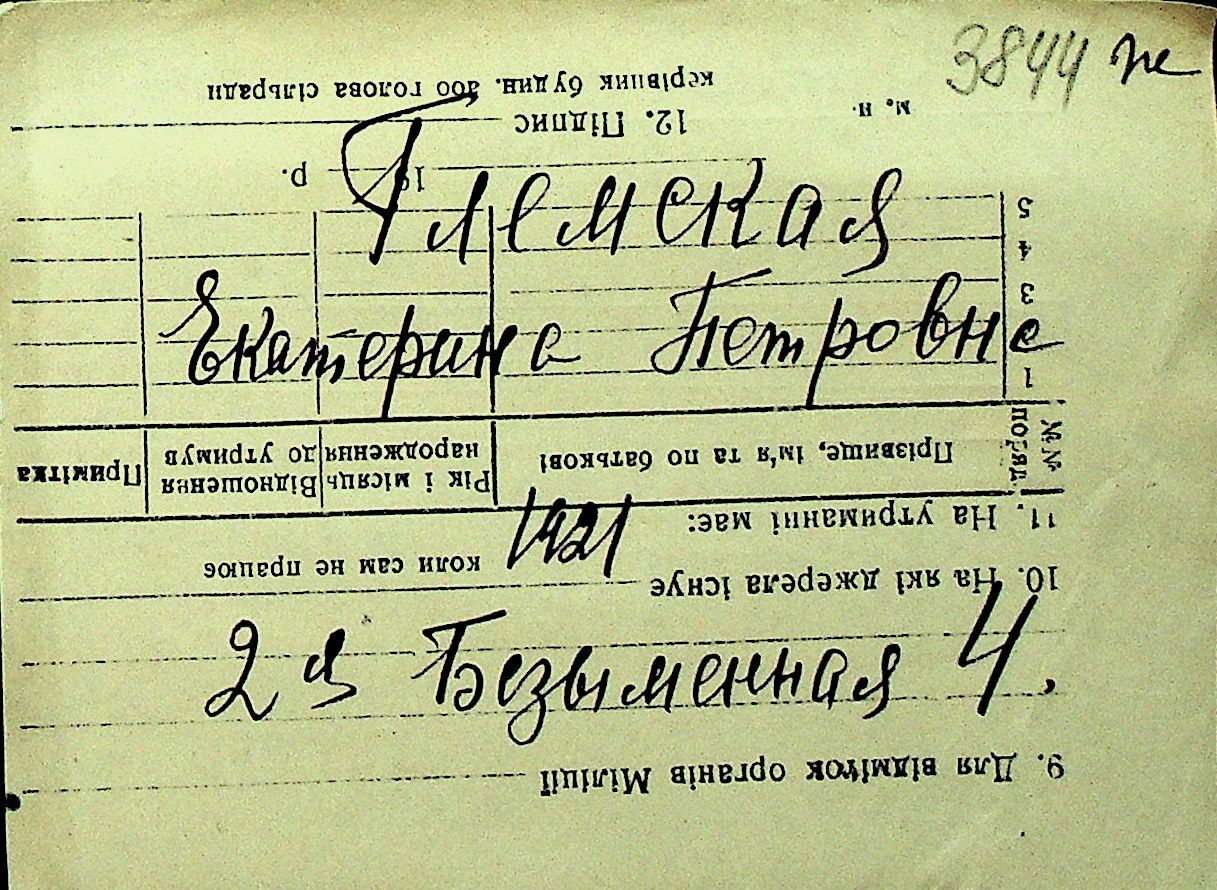 3844
Глемская
Екатерина Петровна
1921
2 я Безыменная 4.
9. Для відміток органів Міліції
10. На які джерела існує
коли сам не працює
11. На утриманні має:
№№ поряд.
Прізвище, ім'я та по батькові
Рік і місяць народження
Відношення до утримув
Примітка
1
2
3
4
5
19 р.
12. Підпис
м. п.
керівник будин. або голова сільради